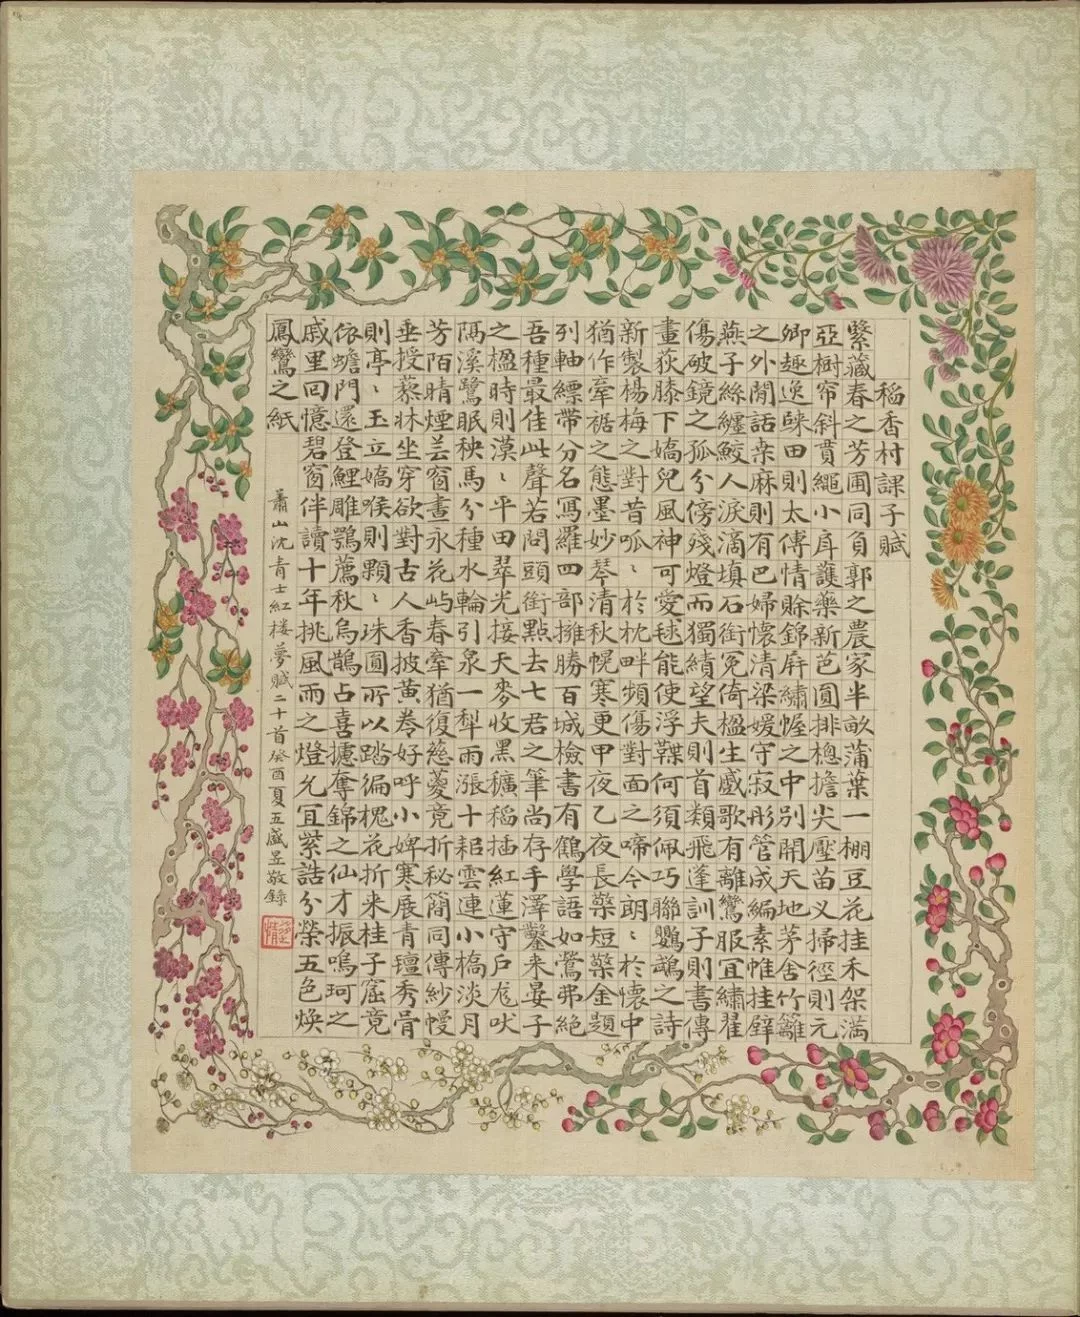 稻香村課子賦
繄藏春之芳圃同負郭之農家半畝蒲葉一棚豆花挂禾架滿
亞樹帘斜貫繩小戽護藥新芭圓排槵擔尖壓苗义掃徑則元
卿趣逸疎田則太傅情賒錦屏繡幄之中別開天地茅舍竹籬
之外閒話桒麻則有巴婦懷清梁媛守寂彤管成編素帷挂壁
燕子絲纏鮫人淚滴填石銜冤倚楹生感歌有離鸞服宜繡翟
傷破鏡之孤分傍殘燈而獨績望夫則首類飛蓬訓子則書傳
畫荻膝下嬌兒風神可愛毬能使浮鞢何須佩巧聯鸚鵡之詩
新製楊梅之對昔呱ヽ於枕畔頻傷對面之啼今朗ヽ於懷中
猶作牽裾之態墨妙琴清秋幌寒更甲夜乙夜長檠短檠金題
列軸縹帶分名寫羅四部擁勝百城檢書有鶴學語如鶯弗絕
吾種最佳此聲若問頭銜點去七君之筆尚存手澤鑿来晏子
之楹時則漠ヽ平田翠光接天麥收黑穬稻插紅蓮守戶尨吠
隔溪鷺眠秧馬分種水輪引泉一犁雨漲十耜雲連小橋淡月
芳陌晴煙芸窗晝永花嶼春牽猶復慈萲竟折秘簡同傳紗幔
垂授藜牀坐穿欲對古人香披黃卷好呼小婢寒展青氊秀骨
則亭ヽ玉立嬌喉則顆ヽ珠圓所以踏徧槐花折来桂子窟竟
依蟾門還登鯉雕鶚薦秋烏鵲占喜攄奪錦之仙才振鳴珂之
戚里回憶碧窗伴讀十年挑風雨之燈允宜紫誥分榮五色煥
鳳鸞之紙
蕭山沈青士紅樓夢賦二十首癸酉夏五盛昱敬錄